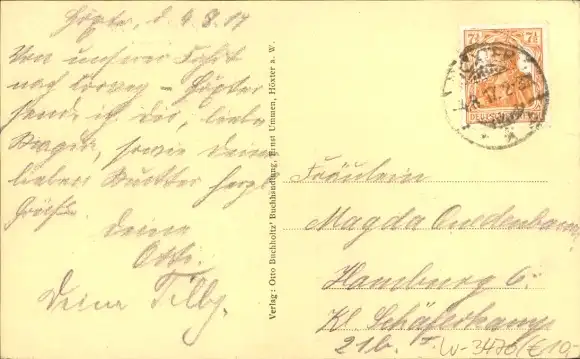 Höxter, d. 4.8.17
Von unserer Fahrt
nach Corvey - Höxter
sende ich dir, liebe
Magda, sowie deiner
lieben Mutter herzl.
Grüße
deine
Otti.
Deine Tilly.
Verlag: Otto Buchholtz' Buchhandlung, Ernst Ummen, Höxter a. W.
7½ 7½
HÖXTER
4.8.17. 2-
DEUTSCHES REICH
Fräulein
Magda Quedenbaum
Hamburg 6.
Kl. Schäferkamp
21b. I.
W-3476/€10-